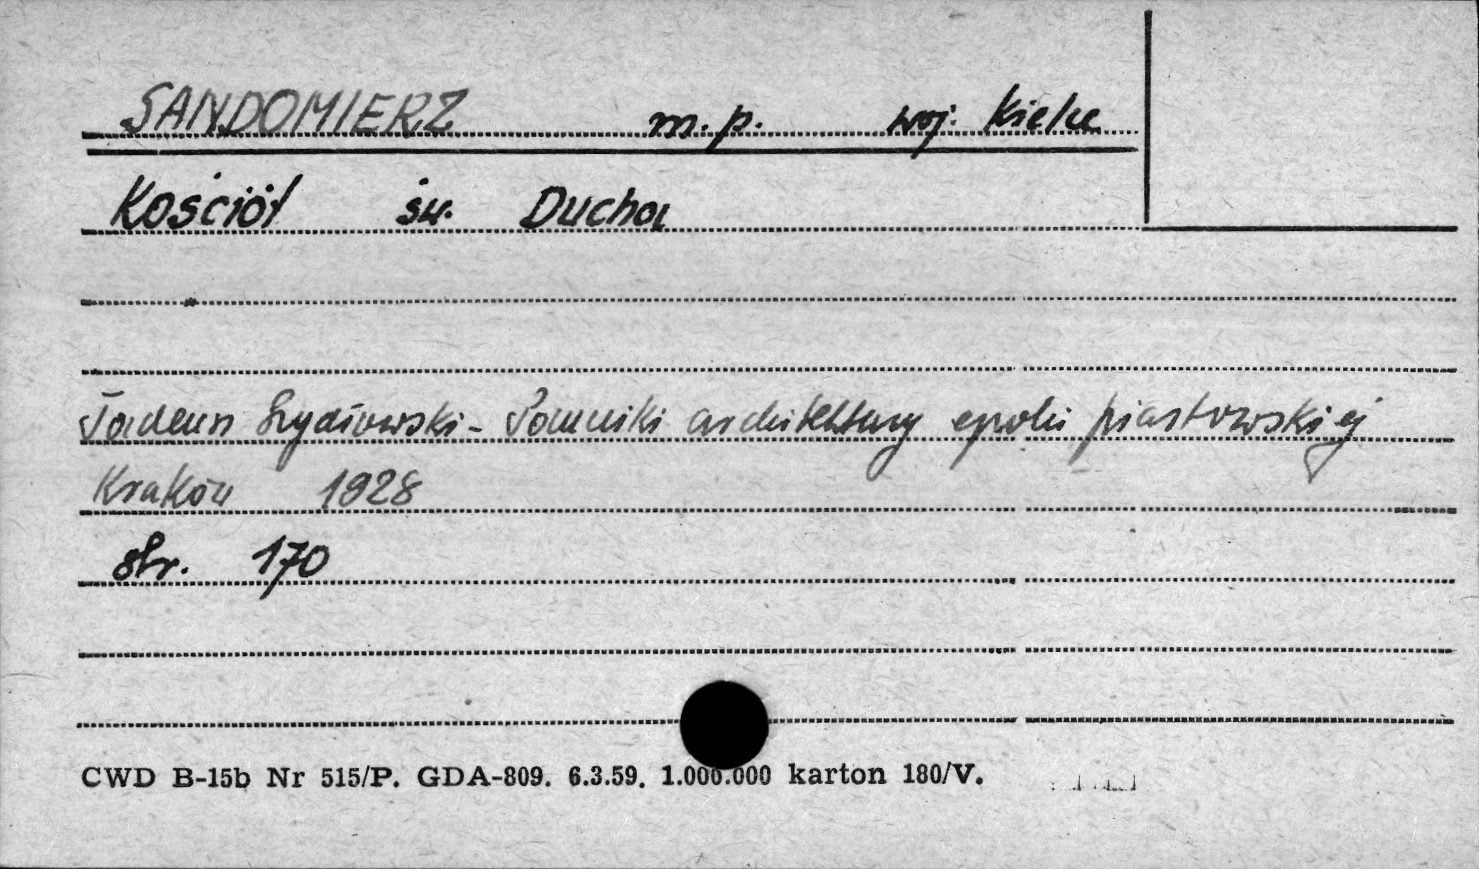 SANDOMIERZ m.p. woj. Kielce
Kościół św. Ducha
Tadeusz Szydłowski - Pomniki architektury epoki piastowskiej
Kraków 1928
str. 170
CWD B-15b Nr 515/P. GDA-809. 6.3.59. 1.000.000 karton 180/V.